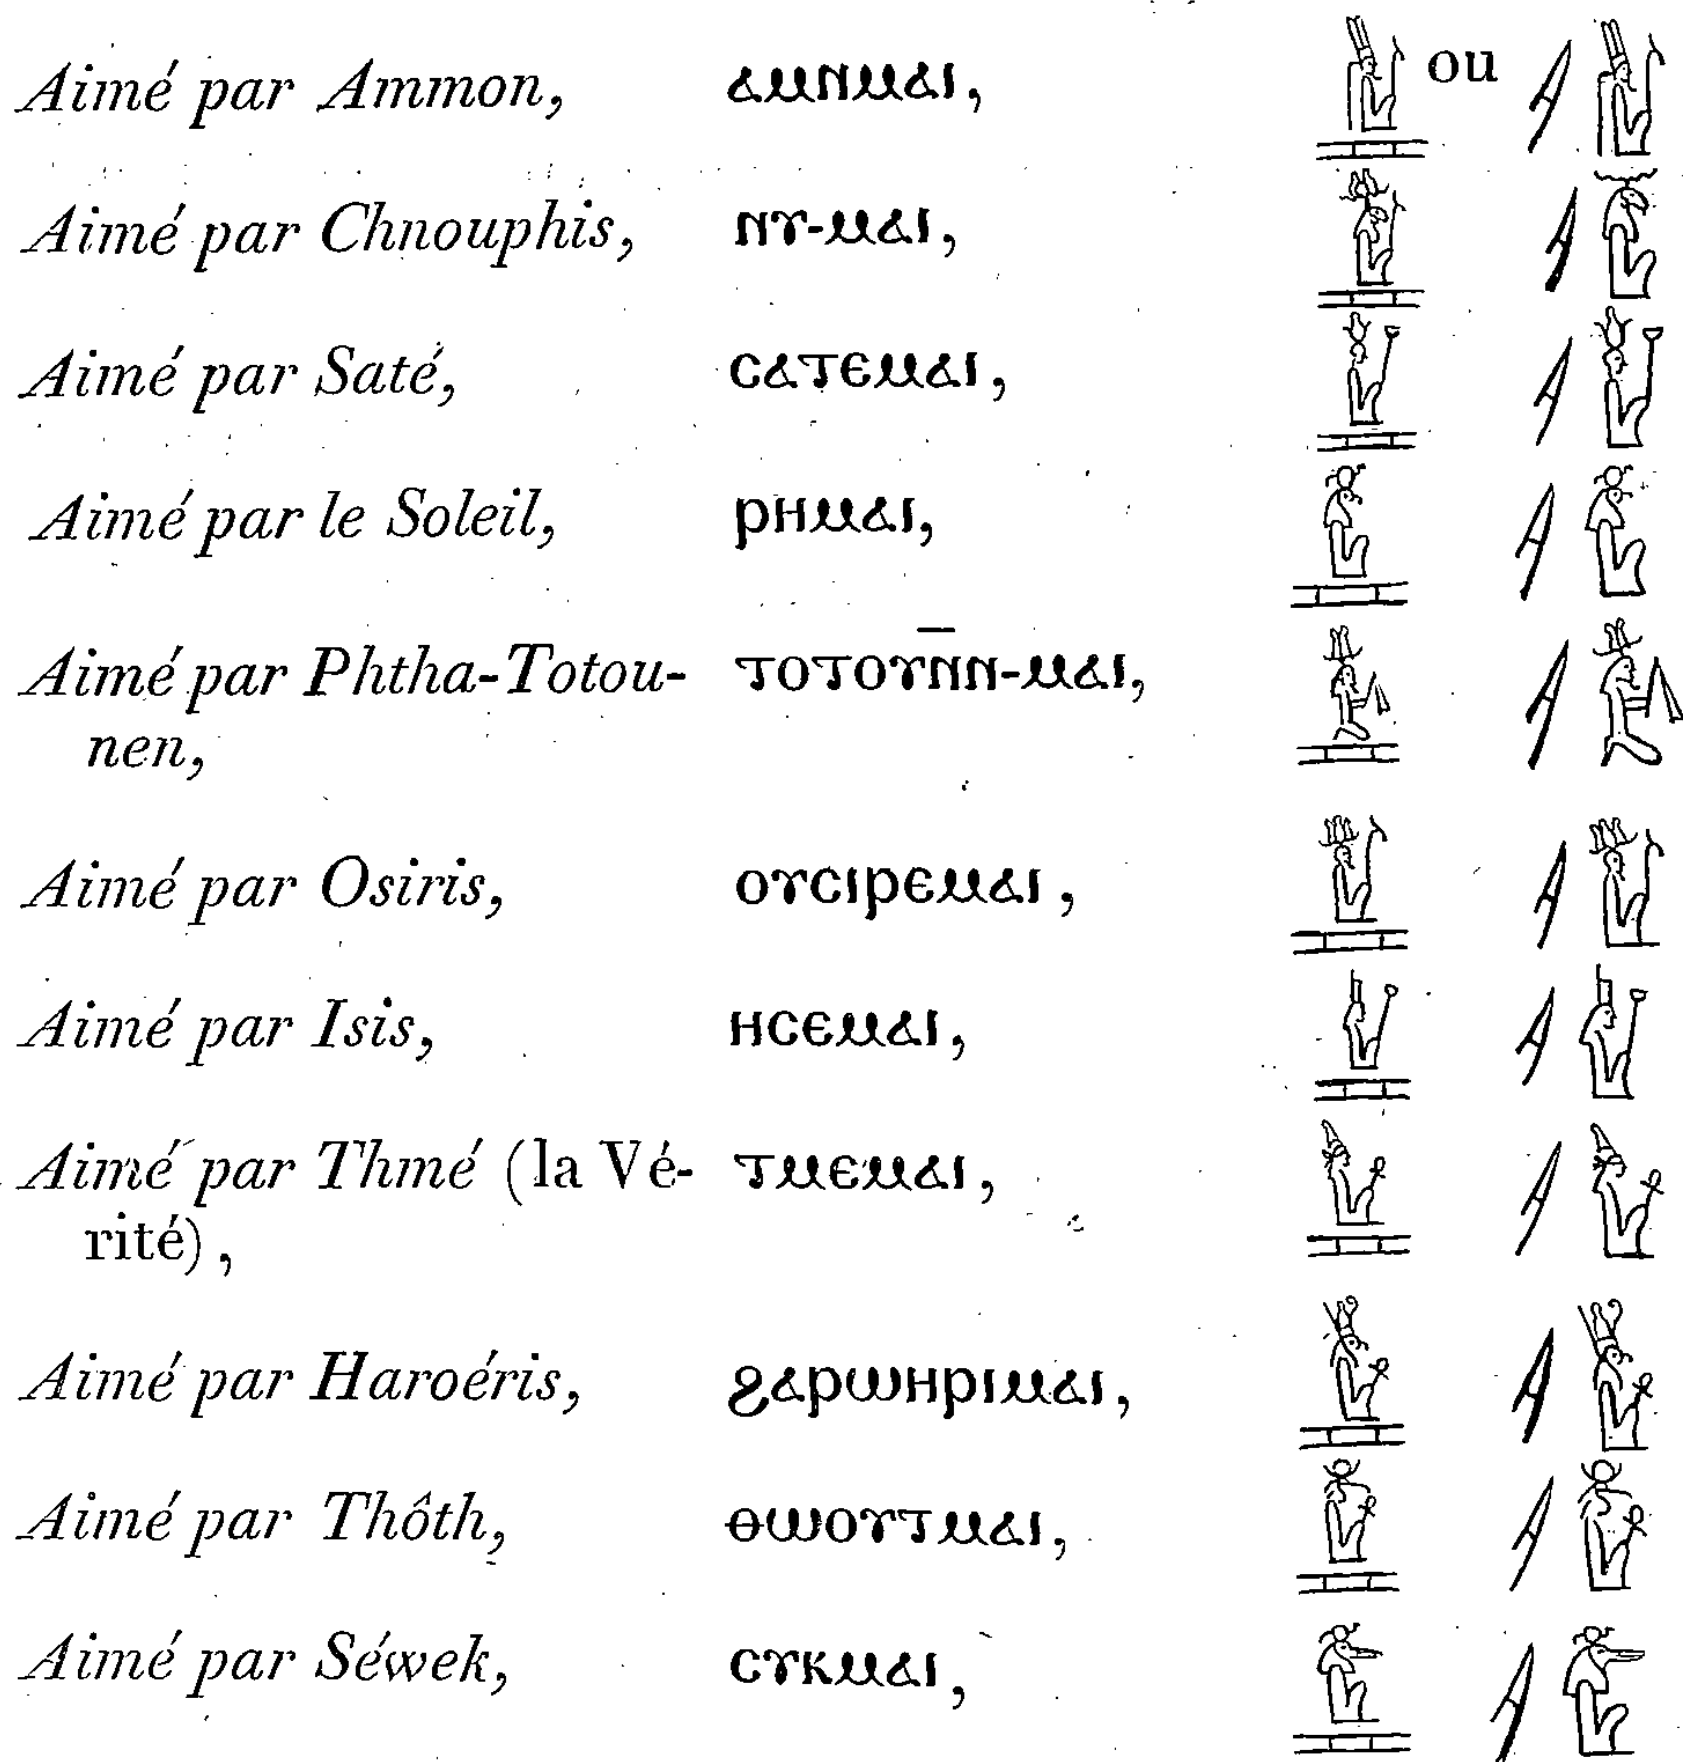 Aimé par Ammon, ⲁⲙⲛⲙⲁⲓ, ou
Aimé par Chnouphis, ⲛⲩ-ⲙⲁⲓ,
Aimé par Saté, ⲥⲁⲧⲉⲙⲁⲓ,
Aimé par le Soleil, ⲣⲏⲙⲁⲓ,
Aimé par Phtha-Totou- ⲧⲟⲧⲟⲩⲛ̅ⲛ-ⲙⲁⲓ,
nen,
Aimé par Osiris, ⲟⲩⲥⲓⲣⲉⲙⲁⲓ,
Aimé par Isis, ⲏⲥⲉⲙⲁⲓ,
Aimé par Thmé (la Vé- ⲧⲙⲉⲙⲁⲓ,
rité),
Aimé par Haroéris, ϩⲁⲣⲱⲏⲣⲓⲙⲁⲓ,
Aimé par Thôth, ⲑⲱⲟⲩⲧⲙⲁⲓ,
Aimé par Séwek, ⲥⲩⲕⲙⲁⲓ,